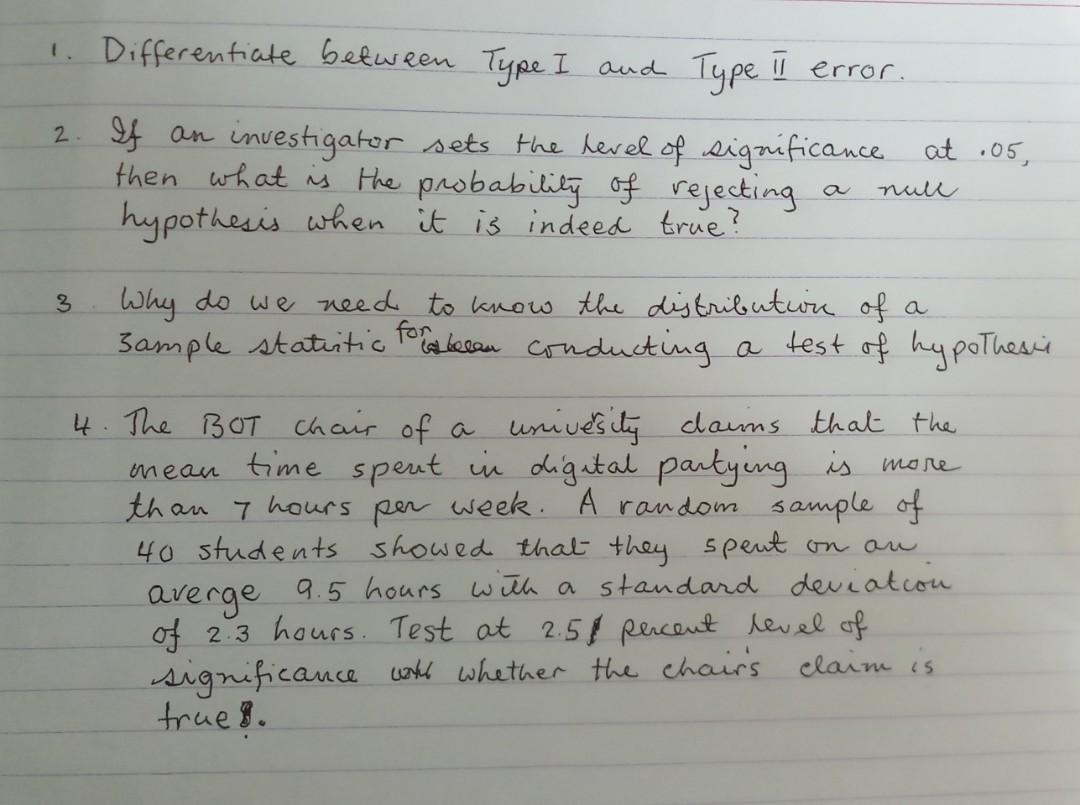 1. Differentiate between Type I and Type II error.
2. If an investigator sets the level of significance at .05,
then what is the probability of rejecting a null
hypothesis when it is indeed true?
3. Why do we need to know the distribution of a
sample statistic for conducting a test of hypothesis
4. The BOT chair of a university claims that the
mean time spent in digital partying is more
than 7 hours per week. A random sample of
40 students showed that they spent on an
averge 9.5 hours with a standard deviation
of 2.3 hours. Test at 2.5 percent level of
significance whether the chair's claim is
true.